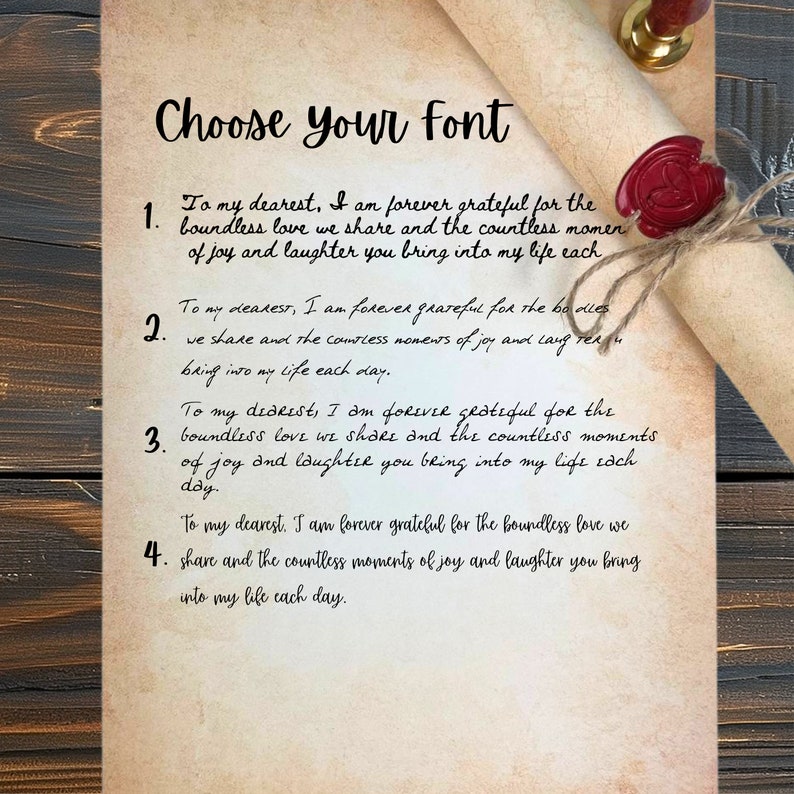 Choose Your Font
1. To my dearest, I am forever grateful for the
boundless love we share and the countless momen
of joy and laughter you bring into my life each
2. To my dearest, I am forever grateful for the
we share and the countless moments of joy and
bring into my life each day.
3. To my dearest, I am forever grateful for the
boundless love we share and the countless moments
of joy and laughter you bring into my life each
day.
4. To my dearest, I am forever grateful for the boundless love we
share and the countless moments of joy and laughter you bring
into my life each day.